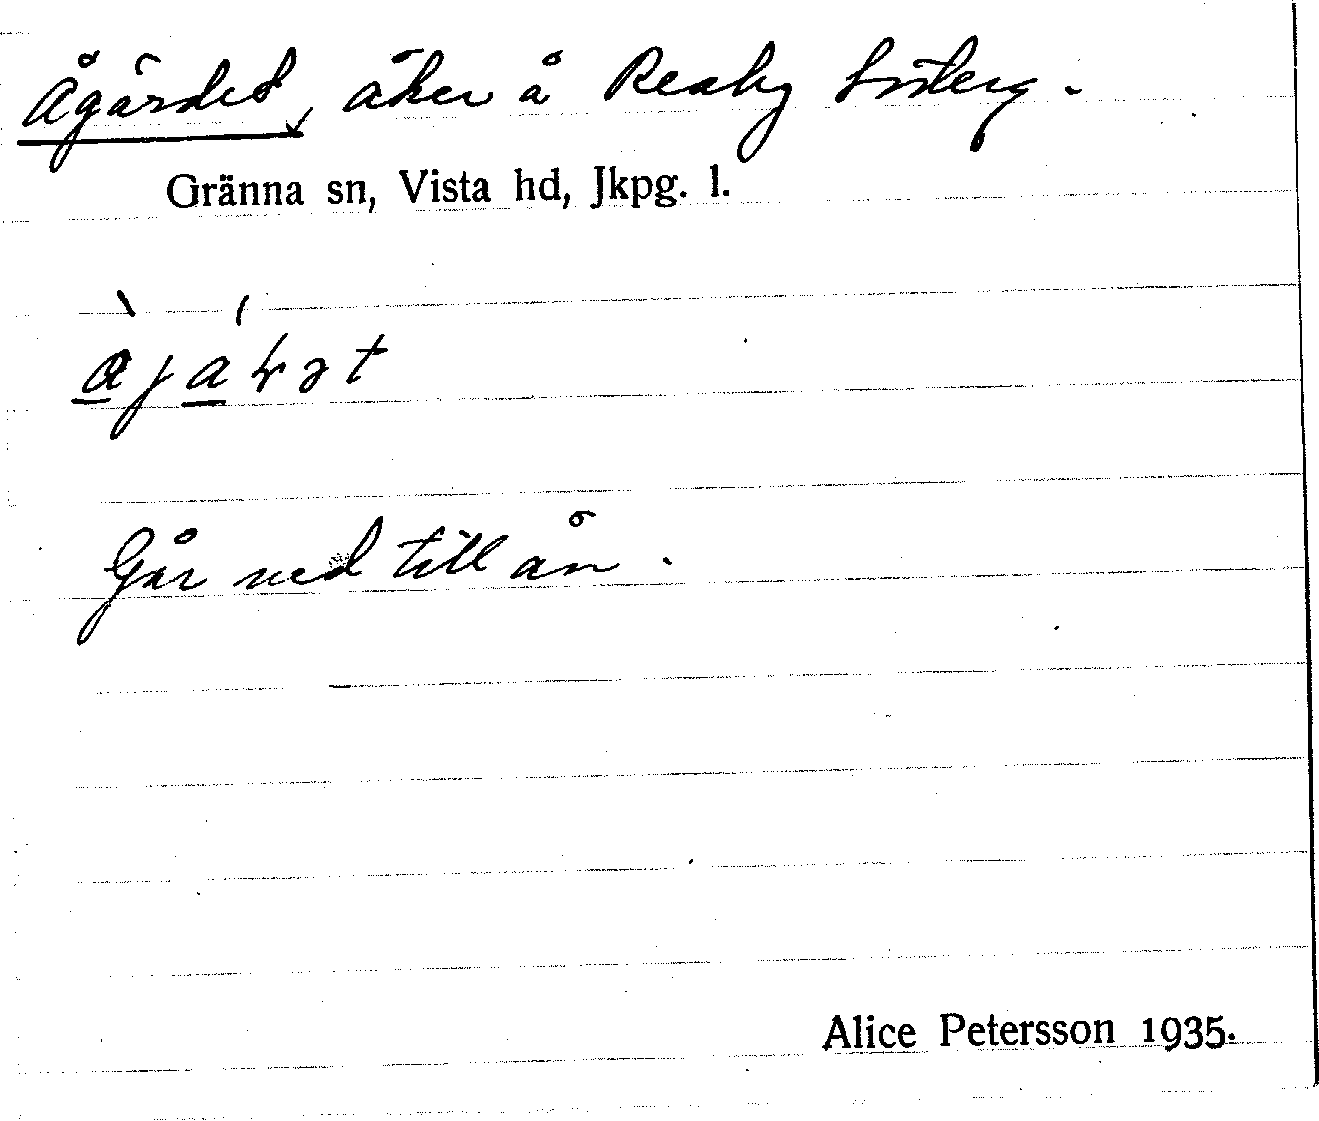 Ågärdet, åker å Reaby Söterg.
Gränna sn, Vista hd, Jkpg. l.
Går ned till ån.
Alice Petersson 1935.